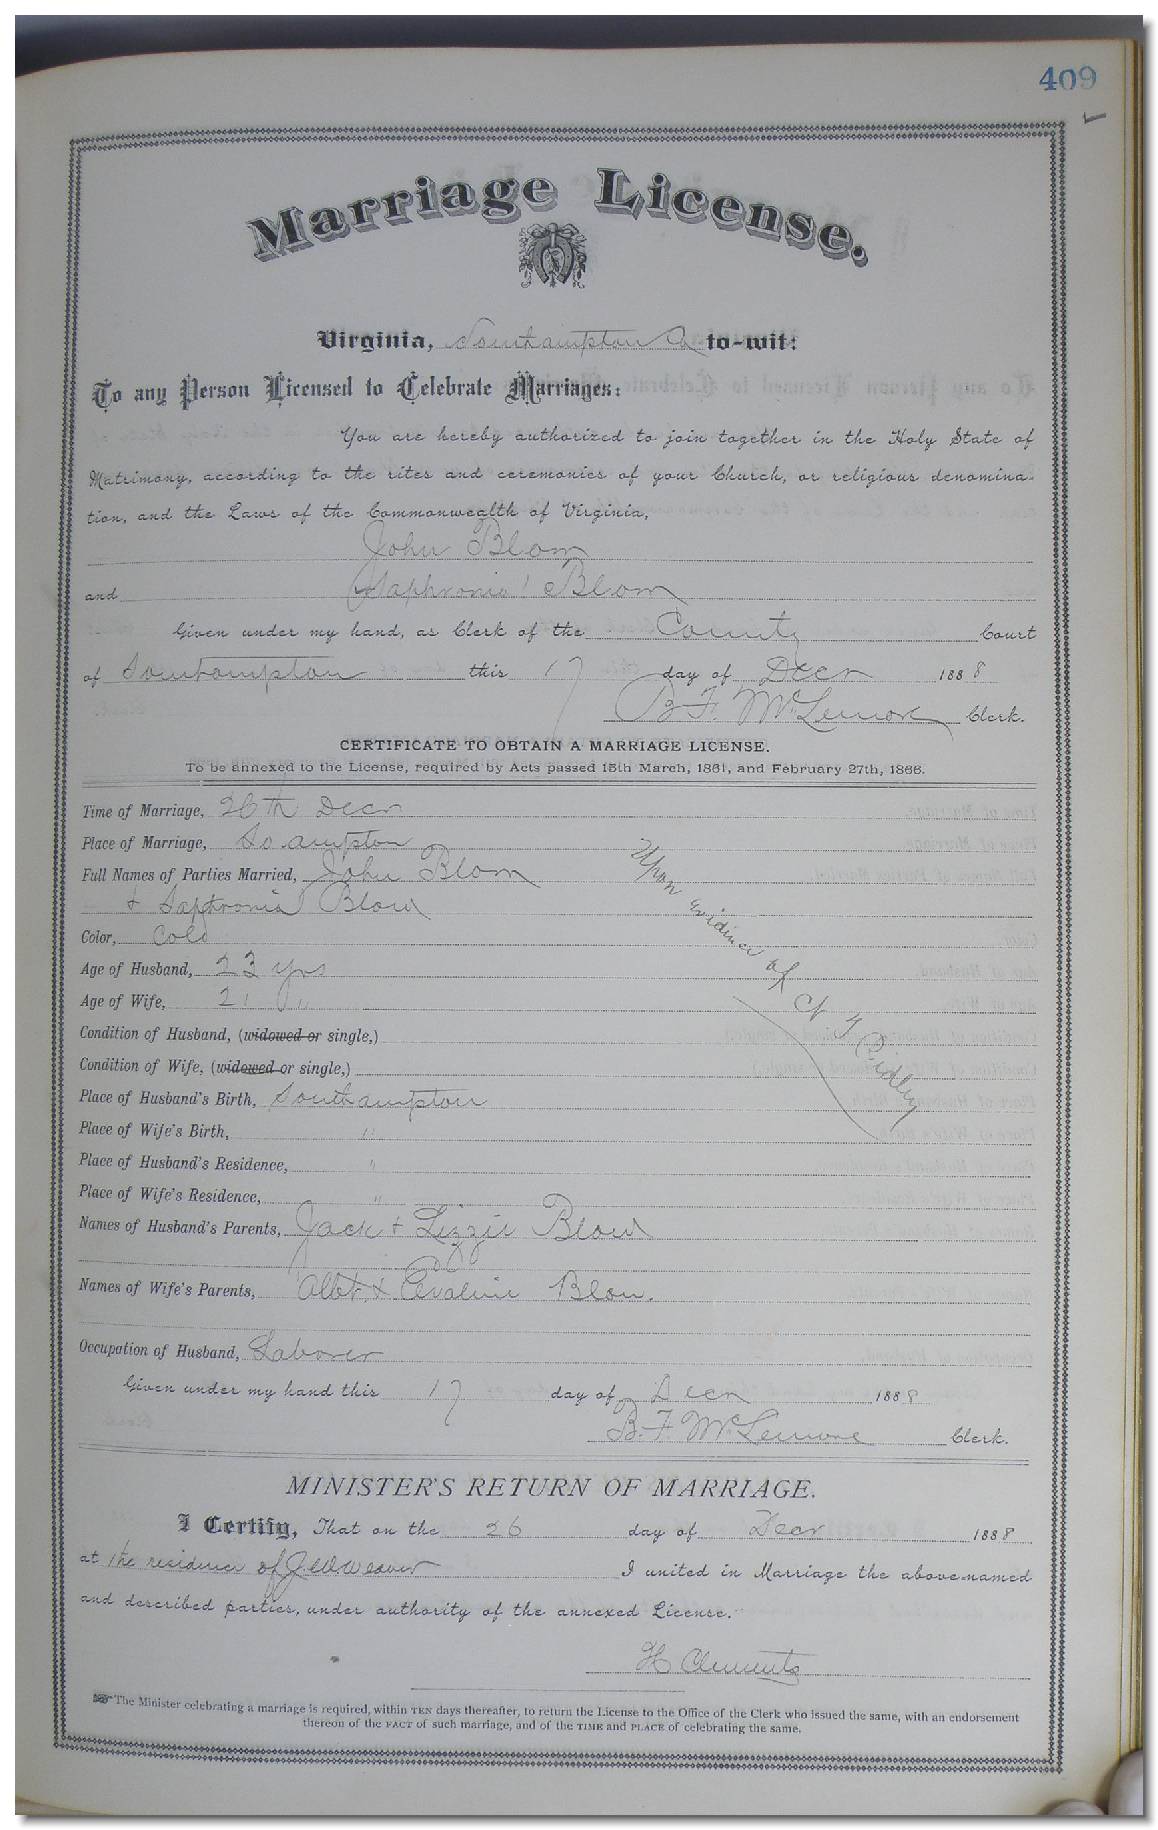 409
Marriage License.
Virginia, Southampton Co to-wit:
To any Person Licensed to Celebrate Marriages:
You are hereby authorized to join together in the Holy State of
Matrimony, according to the rites and ceremonies of your Church, or religious denomina-
tion, and the Laws of the Commonwealth of Virginia,
John Blow
and Saphronia Blow
Given under my hand, as Clerk of the County Court
of Southampton this 17 day of Decr 1888
B. F. McLemore Clerk.
CERTIFICATE TO OBTAIN A MARRIAGE LICENSE.
To be annexed to the License, required by Acts passed 15th March, 1861, and February 27th, 1866.
Time of Marriage, 26th Decr
Place of Marriage, So.ampton
Full Names of Parties Married, John Blow
+ Saphronia Blow
Color, Cold
Age of Husband, 23 yrs
Age of Wife, 21 "
Condition of Husband, (widowed or single,)
Condition of Wife, (widowed or single,)
Place of Husband's Birth, Southampton
Place of Wife's Birth, "
Place of Husband's Residence, "
Place of Wife's Residence, "
Upon evidence of Ridley
Names of Husband's Parents, Jack + Lizzie Blow
Names of Wife's Parents, Albt. + Evaline Blow.
Occupation of Husband, Laborer
Given under my hand this 17 day of Decr 1888
B. F. McLemore Clerk.
MINISTER'S RETURN OF MARRIAGE.
I Certify, That on the 26 day of Decr 1888
at the residence of Weaver I united in Marriage the above-named
and described parties, under authority of the annexed License.
H Clements
The Minister celebrating a marriage is required, within TEN days thereafter, to return the License to the Office of the Clerk who issued the same, with an endorsement
thereon of the FACT of such marriage, and of the TIME and PLACE of celebrating the same.